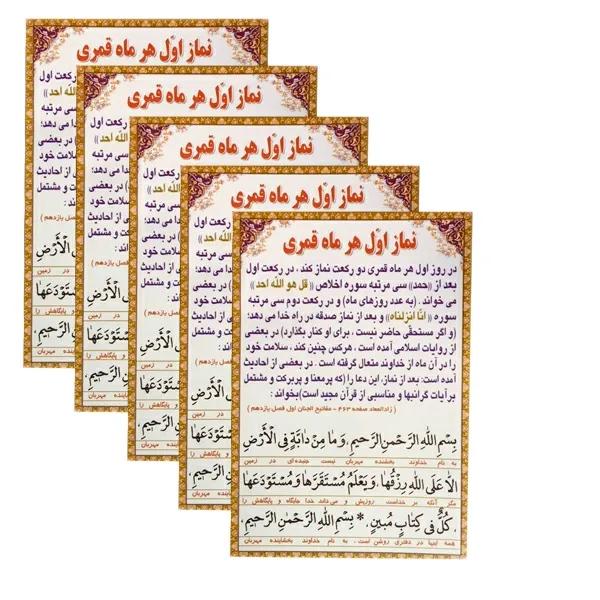 نماز اوّل هر ماه قمری
نماز اوّل هر ماه قمری
نماز اوّل هر ماه قمری
نماز اوّل هر ماه قمری
نماز اوّل هر ماه قمری
در روز اول هر ماه قمری دو رکعت نماز کند ، در رکعت اول
بعد از «حمد» سی مرتبه سوره اخلاص «قل هو الله احد»
می خواند . (به عدد روزهای ماه) و در رکعت دوم سی مرتبه
سوره «انّا انزلناه» و بعد از نماز صدقه در راه خدا می دهد؛
(و اگر مستحقّی حاضر نیست ، برای او کنار بگذارد) در بعضی
از روایات اسلامی آمده است ، هرکس چنین کند ، سلامت خود
را در آن ماه از خداوند متعال گرفته است . در بعضی از احادیث
آمده است: بعد از نماز، این دعا را (که پرمعنا و پربرکت و مشتمل
بر آیات گرانبها و مناسبی از قرآن مجید است) بخواند :
( زادالمعاد صفحه ۴۶۳ - مفاتیح الجنان اول فصل یازدهم )
بِسْمِ اللهِ الرَّحْمنِ الرَّحیمِ، وَ ما مِنْ دابَّةٍ فِی الْأَرْضِ
به نام خداوند بخشنده مهربان نیست جنبنده ای در زمین
اِلاّ عَلَی اللهِ رِزْقُها، وَ یَعْلَمُ مُسْتَقَرَّها وَ مُسْتَوْدَعَها
مگر آنکه بر خداست روزیش و می داند خدا جایگاه و پایگاهش را
، کُلٌّ فی کِتابٍ مُبینٍ ، * بِسْمِ اللهِ الرَّحْمنِ الرَّحیمِ،
همه اینها در دفتری روشن است . به نام خداوند بخشاینده مهربان